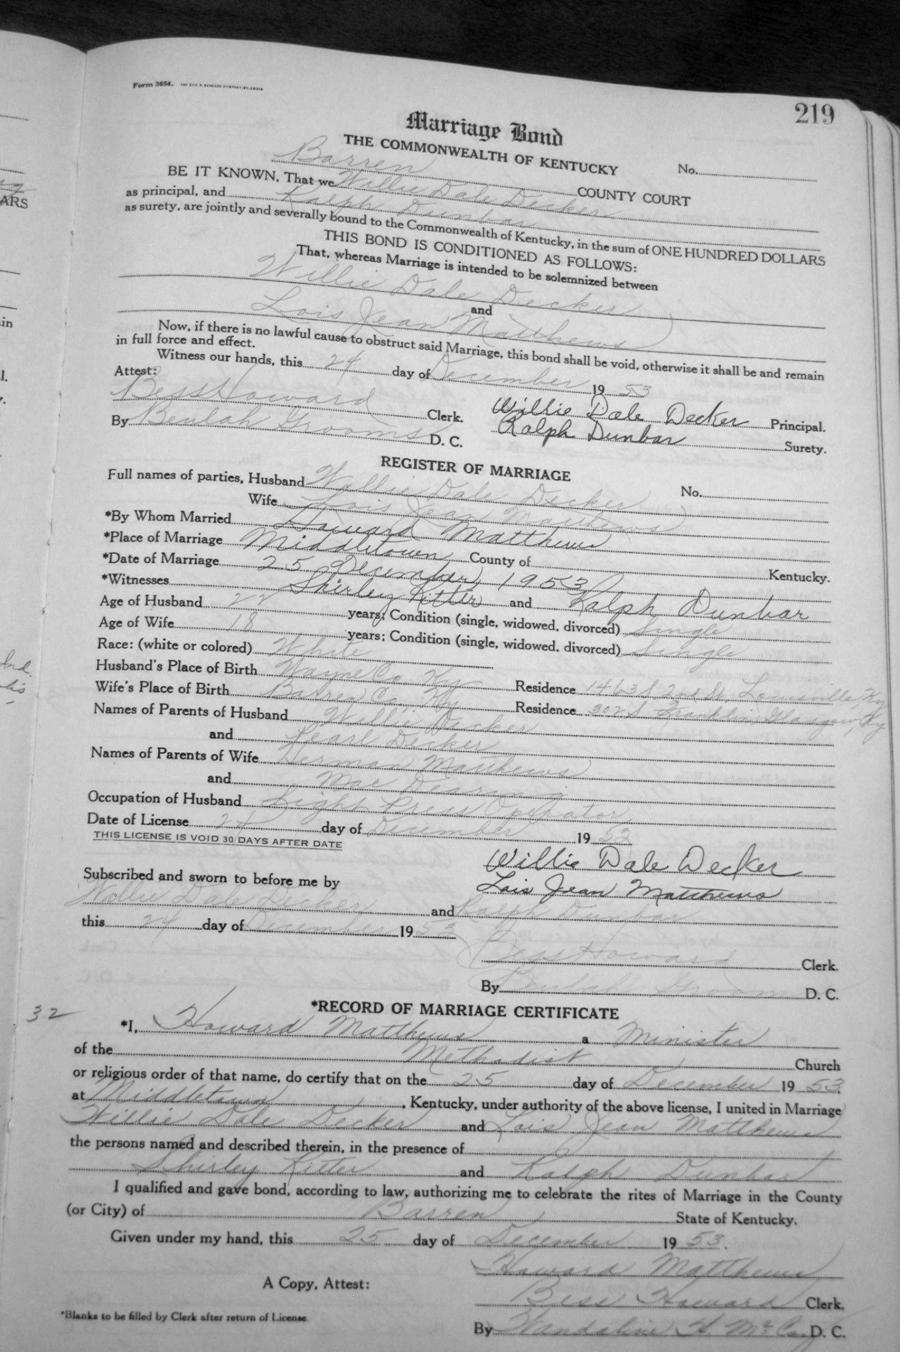 Form 3654.
219
Marriage Bond
THE COMMONWEALTH OF KENTUCKY
No.
Barren COUNTY COURT
BE IT KNOWN, That we Willie Dale Decker
as principal, and Ralph Dunbar
as surety, are jointly and severally bound to the Commonwealth of Kentucky, in the sum of ONE HUNDRED DOLLARS
THIS BOND IS CONDITIONED AS FOLLOWS:
That, whereas Marriage is intended to be solemnized between
Willie Dale Decker
and
Lois Jean Matthews
Now, if there is no lawful cause to obstruct said Marriage, this bond shall be void, otherwise it shall be and remain
in full force and effect.
Witness our hands, this 24 day of December 19 53
Attest:
Bess Howard Clerk. Willie Dale Decker Principal.
By Beulah Grooms D. C. Ralph Dunbar Surety.
REGISTER OF MARRIAGE
Full names of parties, Husband Willie Dale Decker No.
Wife Lois Jean Matthews
*By Whom Married Howard Matthews
*Place of Marriage Middletown County of Kentucky.
*Date of Marriage 25 December, 1953
*Witnesses Shirley Ritter and Ralph Dunbar
Age of Husband 22 years; Condition (single, widowed, divorced) Single
Age of Wife 18 years; Condition (single, widowed, divorced) Single
Race: (white or colored) White
Husband's Place of Birth Wayne Co. Ky Residence 1463 S 2nd St. Louisville, Ky
Wife's Place of Birth Barren Co. Ky Residence 302 S Franklin, Glasgow, Ky
Names of Parents of Husband Willie Decker
and Pearl Decker
Names of Parents of Wife Herman Matthews
and Mae Dearing
Occupation of Husband Light Press Operator
Date of License 24 day of December 19
THIS LICENSE IS VOID 30 DAYS AFTER DATE
Willie Dale Decker
Subscribed and sworn to before me by Lois Jean Matthews
Willie Dale Decker and Ralph Dunbar
this 24 day of December 19 53
Bess Howard Clerk.
By Beulah Grooms D. C.
32
*RECORD OF MARRIAGE CERTIFICATE
*I, Howard Matthews a Minister
of the Methodist Church
or religious order of that name, do certify that on the 25 day of December 19 53
at Middletown, Kentucky, under authority of the above license, I united in Marriage
Willie Dale Decker and Lois Jean Matthews
the persons named and described therein, in the presence of
Shirley Ritter and Ralph Dunbar
I qualified and gave bond, according to law, authorizing me to celebrate the rites of Marriage in the County
(or City) of Barren State of Kentucky.
Given under my hand, this 25 day of December 19 53.
Howard Matthews
A Copy, Attest: Bess Howard Clerk.
*Blanks to be filled by Clerk after return of License
By Wandaline H McCoy D. C.